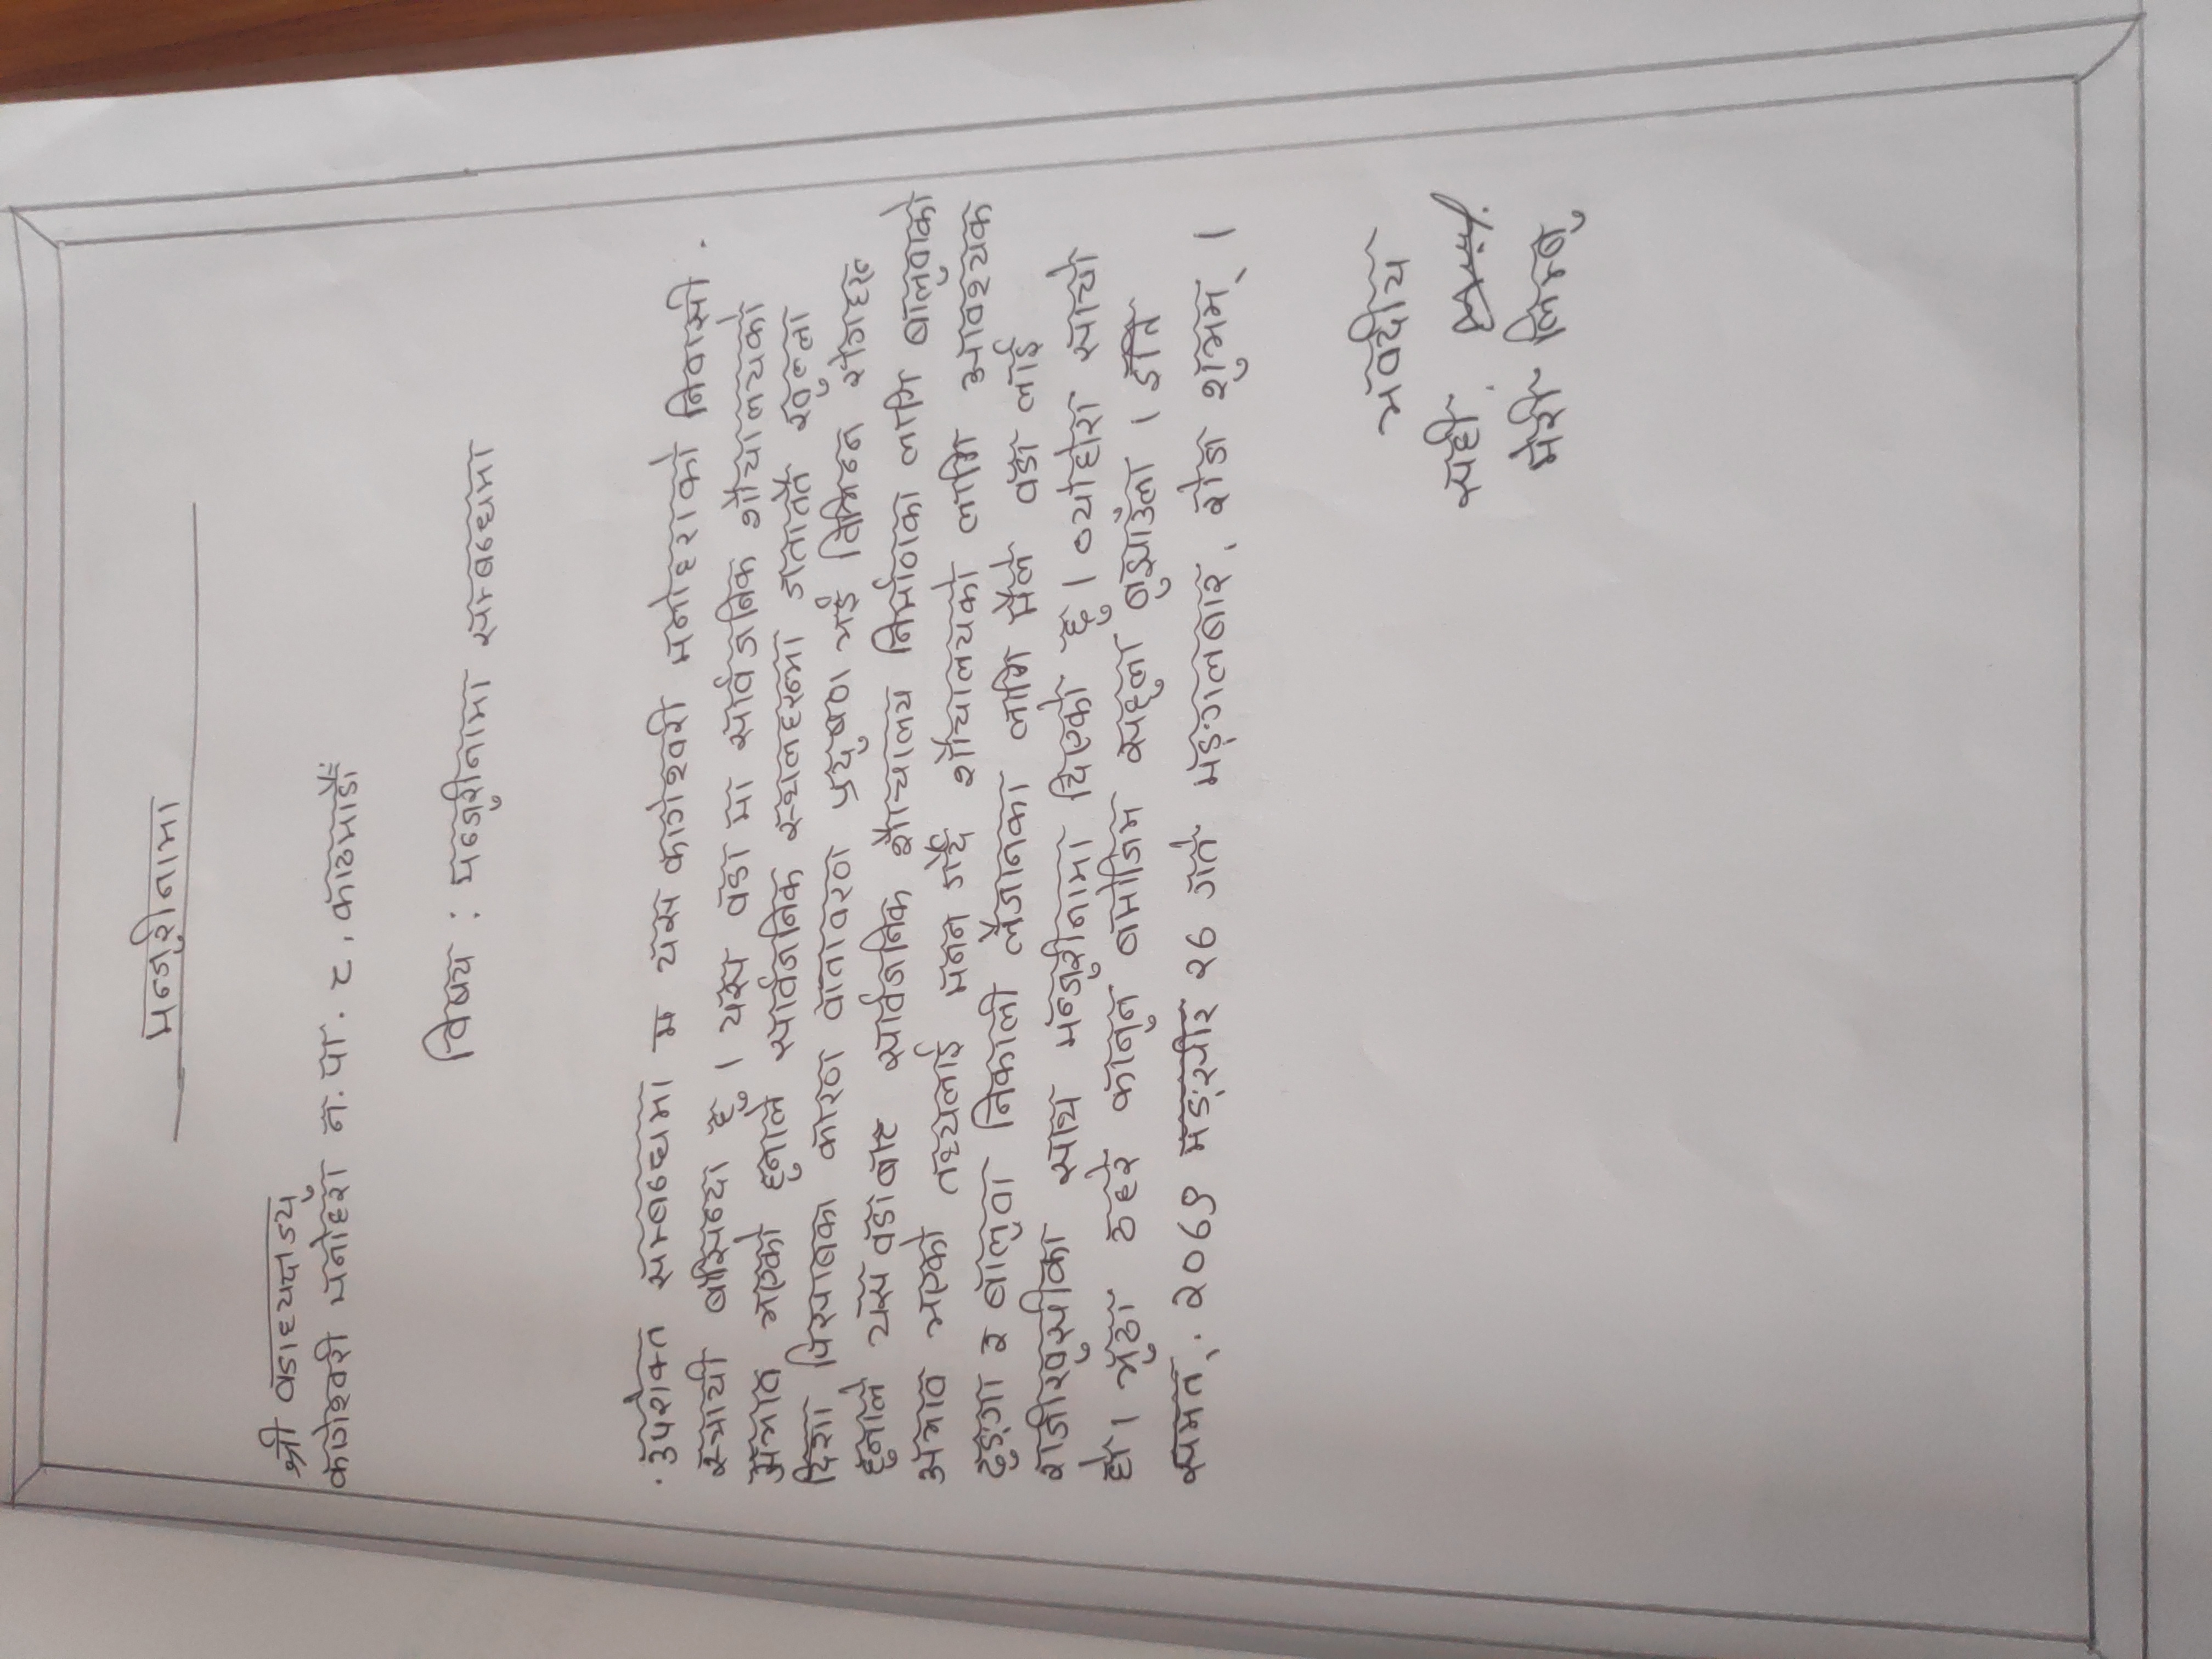 मन्जूरीनामा
श्री वडाध्यक्षज्यु
कागेश्वरी मनोहरा न.पा. ८, काठमाडौं
विषय : मन्जूरीनामा सम्बन्धमा
उपरोक्त सम्बन्धमा म यस कागेश्वरी मनोहराको निवासी
स्थायी बासिन्दा हु । यस वडा मा सार्वजनिक शौचालयको
अभाव भएको हुनाले सार्वजनिक स्थलहरुमा जताततै खुल्ला
दिशा पिसाबका कारण वातावरण प्रदुषण भई विभिन्न रोगहरु
हुनाले यस वडाबाट सार्वजनिक शौचालय निर्माणका लागि बालुवाको
अभाव भएको तथ्यलाई मनन गर्दै शौचालयको लागि आवश्यक
ढुङ्गा र बालुवा निकाली लैजानका लागि मैले वडा लाई
राजीखुसीका साथ मन्जूरीनामा दिएको छु । व्योहोरा साचो
हो । झुठा ठहरे कानुन बमोजिम सहुला बुझाउँला । इति
सम्मत्, २०६९ मङ्सीर २६ गते मङ्गलबार, रोज शुभम् ।
भवदीय
सही.
मेरी लिम्बु